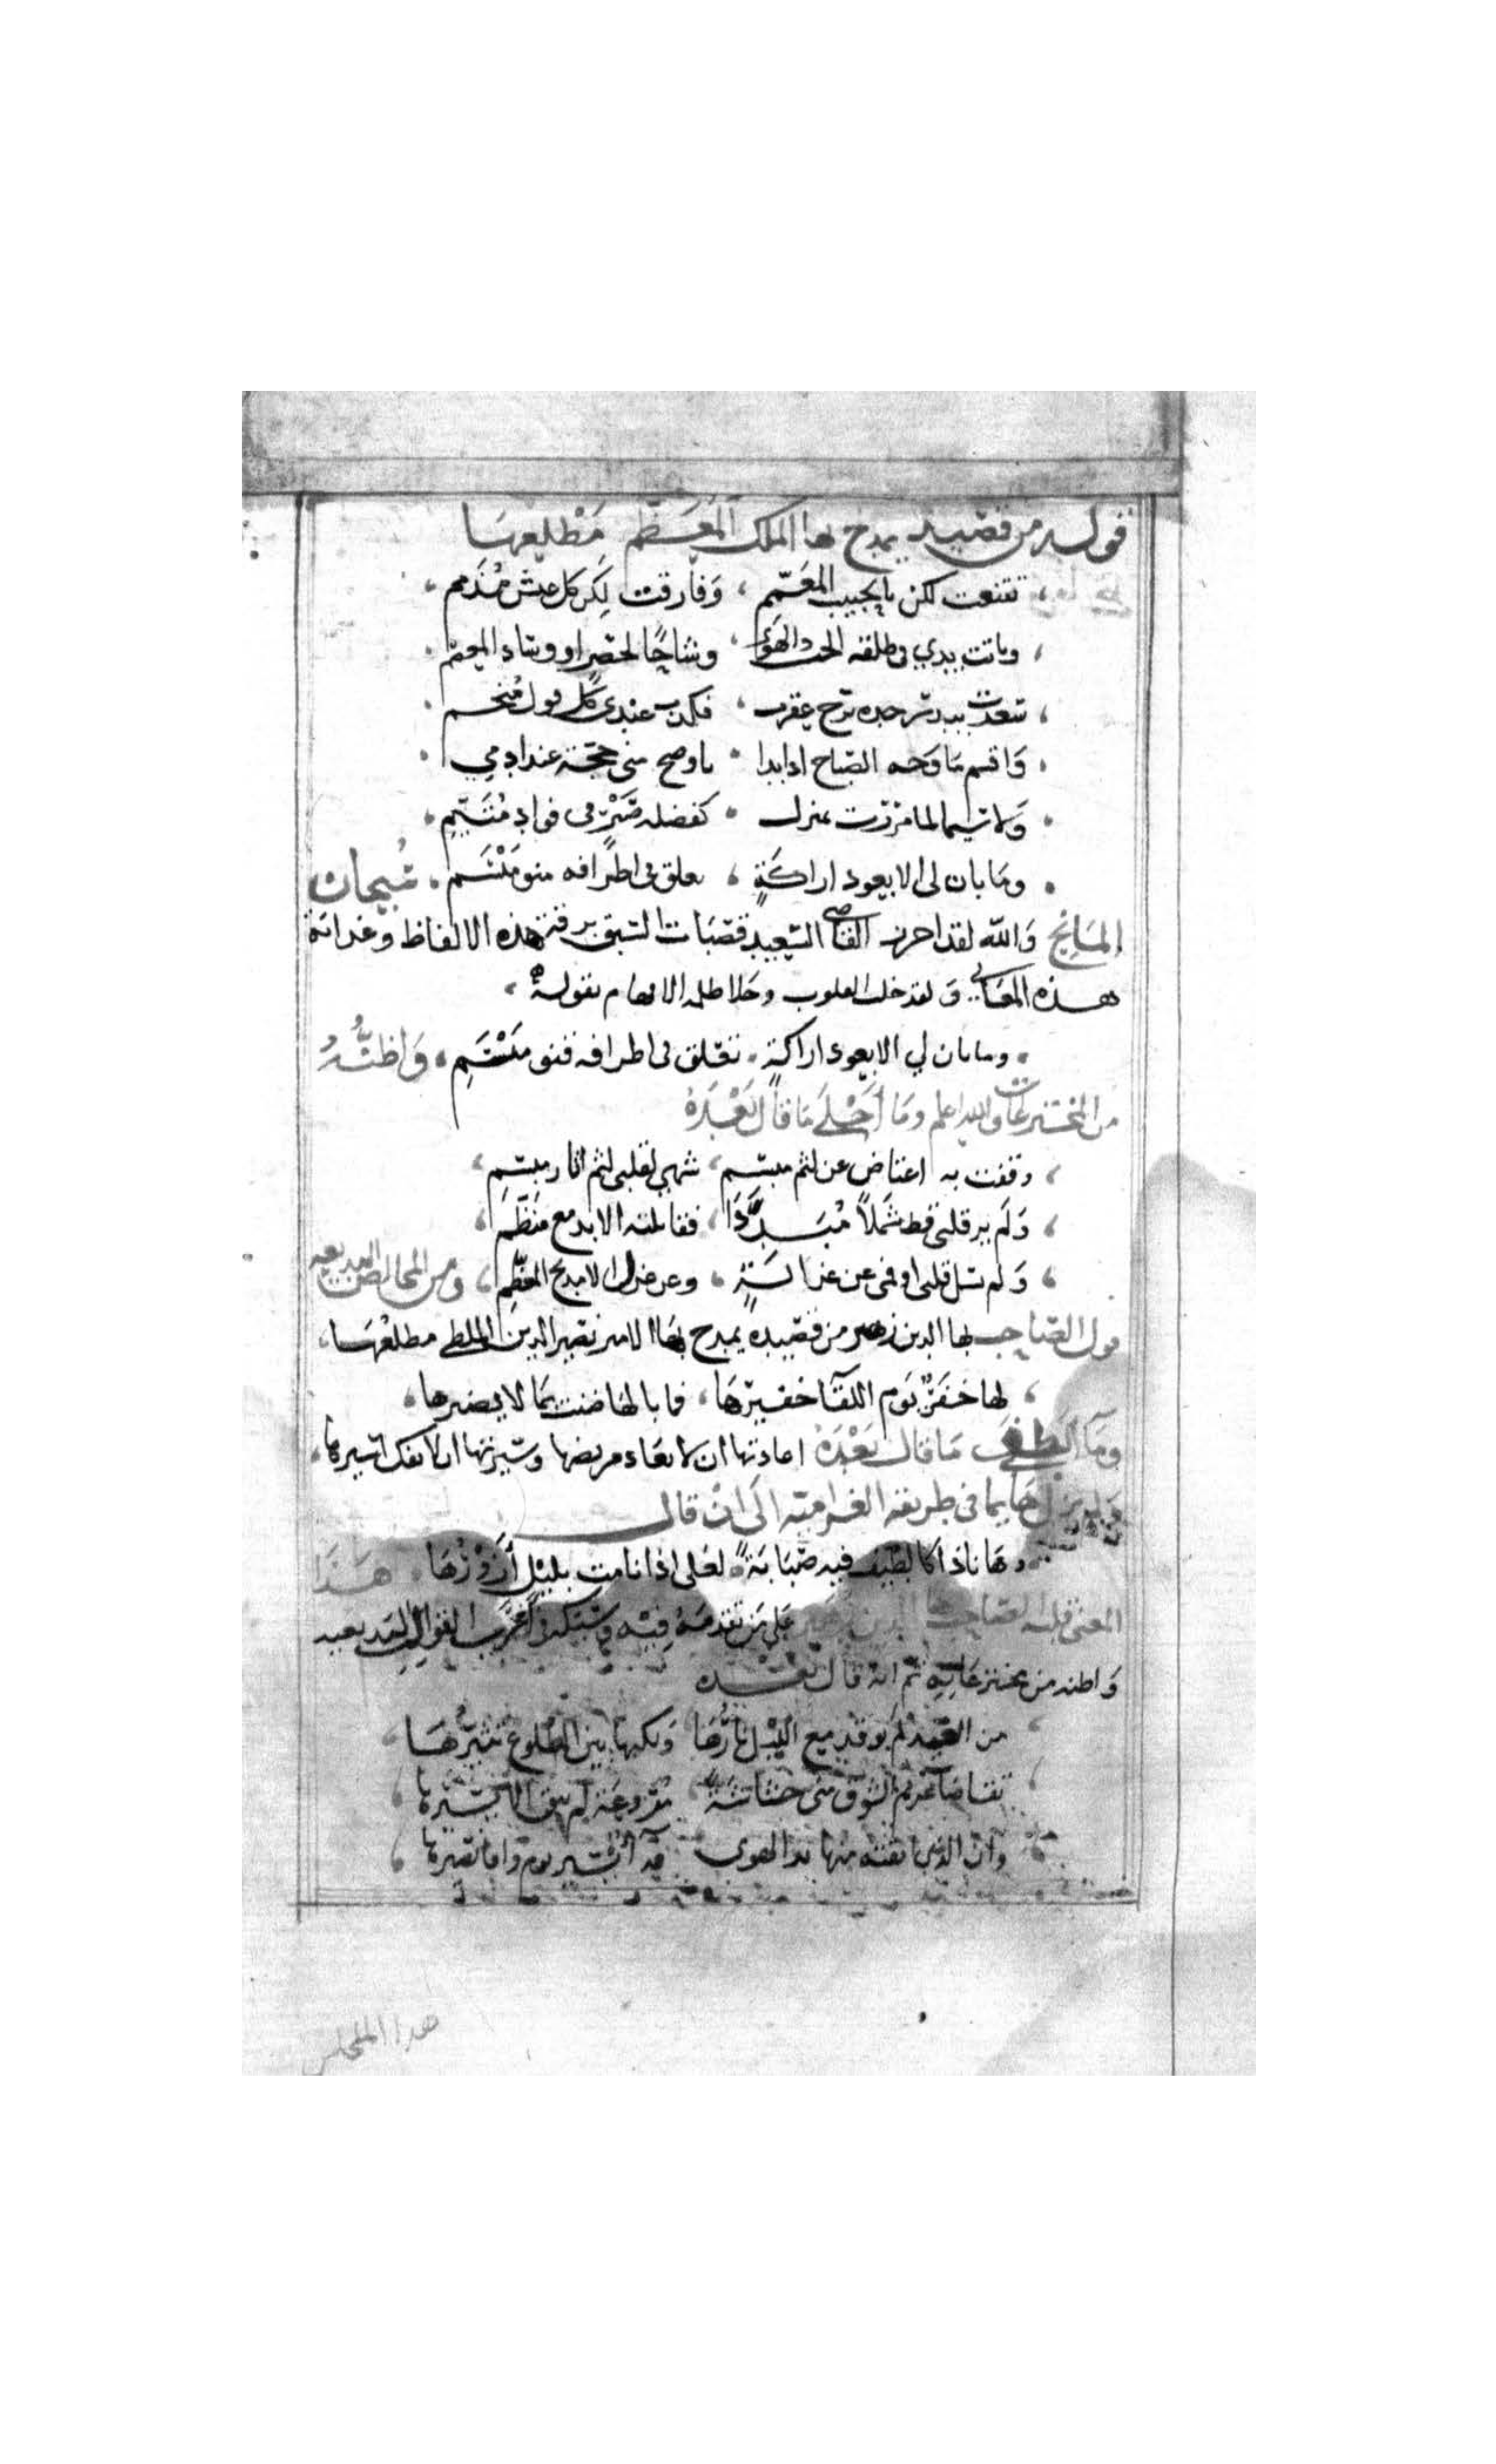 قوله من قصيدة يمدح بها الملك المعظم مطلعها
تقنعت لكن بالحبيب المعمم وفارقت لكن كل عيش مذمم
وباتت يدي في طاعة الحب والهوى وشاحا لخصر او وسادا لمعصم
وأقسم ما وجه الصباح اذا بدا باوضح مني حجة عند لومي
ولا سيما لما مررت بمنزل كفضلة صبر في فؤاد متيم
وما بان لي الا بعود اراكة تعلق في اطرافه ضوء مبسم سبحان
المانح والله لقد احرز القاضي السعيد قصبات السبق برقة هذه الالفاظ وغرابة
هذه المعاني ولقد خلب القلوب وجلا ظلمة الافهام بقوله
وما بان لي الا بعود اراكة تعلق في اطرافه ضوء مبسم واظنه
من المخترعات والله اعلم وما أحلى ما قال بعده
وقفت به اعتاض عن لثم مبسم شهي لقلبي لثم اثار مبسم
ولم ير قلبي قط شملا مبددا فقابلته الا بدمع منظم
ولم يسل قلبي او فمي عن غزالة وعن غزل الا بمدح المعظم ومن المخالص البديعة
قول الصاحب بها الدين زهير من قصيدة يمدح بها الامير نصير الدين الملطي مطلعها
لها خفر يوم اللقا خفيرها فما بالها ضنت بما لا يضيرها
وما الطف ما قال بعده اعادتها ان لا يعاد مريضها وسيرتها ان لا يفك اسيرها
ولم يزل هايما في طريقه الغرامية الى ان قال
وها نا ذا كالطيف فيه صبابة لعلي اذا نامت بليل أزورها هذا
المعنى قلبه الصاحب بها الدين زهير على من تقدمه فيه وسبكه في اغرب القوالب البديعية
واظنه من مخترعاته ثم انه قال بعده
من الغيد لم توقد مع الليل نارها ولكنها بين الضلوع تثيرها
تقاضا غريم الشوق مني حشاشة مروعة لم يبق الا يسيرها
وان الذي ابقته منها يد الهوى فدآ بشير يوم وافا نصيرها
هذا المخلص